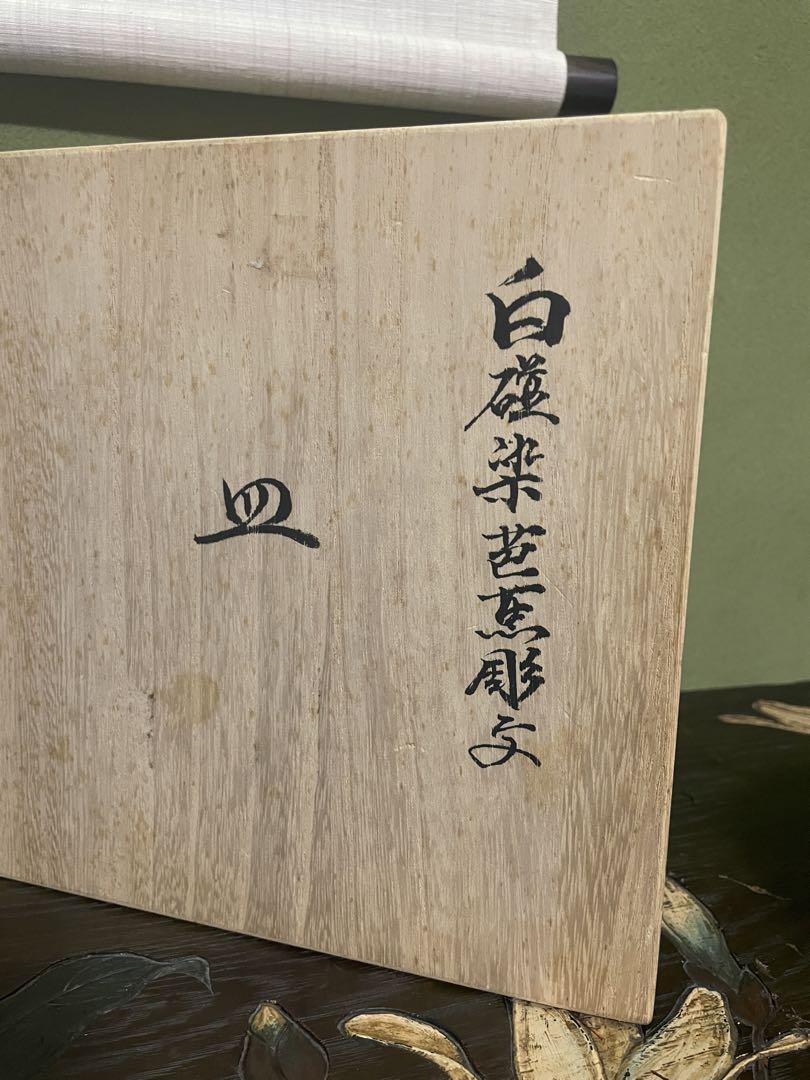 白磁染芭蕉彫文
皿